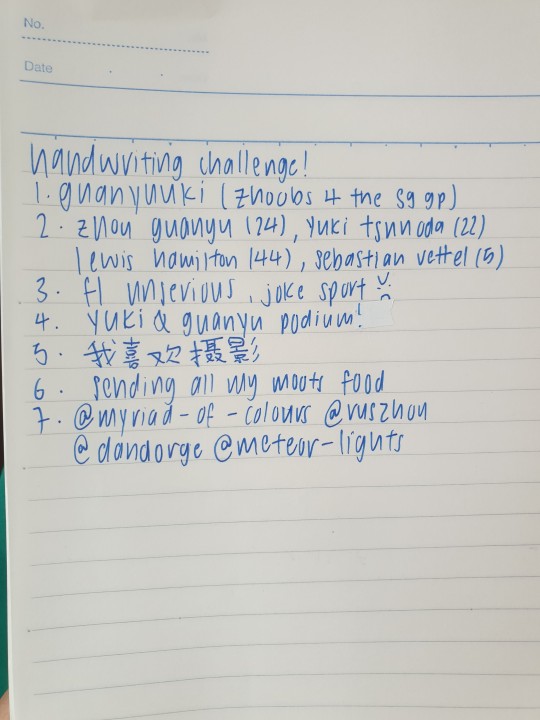 No.
Date
handwriting challenge!
1. guanyuuki (zhoobs 4 the sg gp)
2. zhou guanyu (24), yuki tsunoda (22)
lewis hamilton (44), sebastian vettel (5)
3. f1 unserious, joke sport
4. yuki & guanyu podium!
5. 我喜欢摄影
6. sending all my moots food
7. @myriad-of-colours @ruszhou
@dandorge @meteor-lights